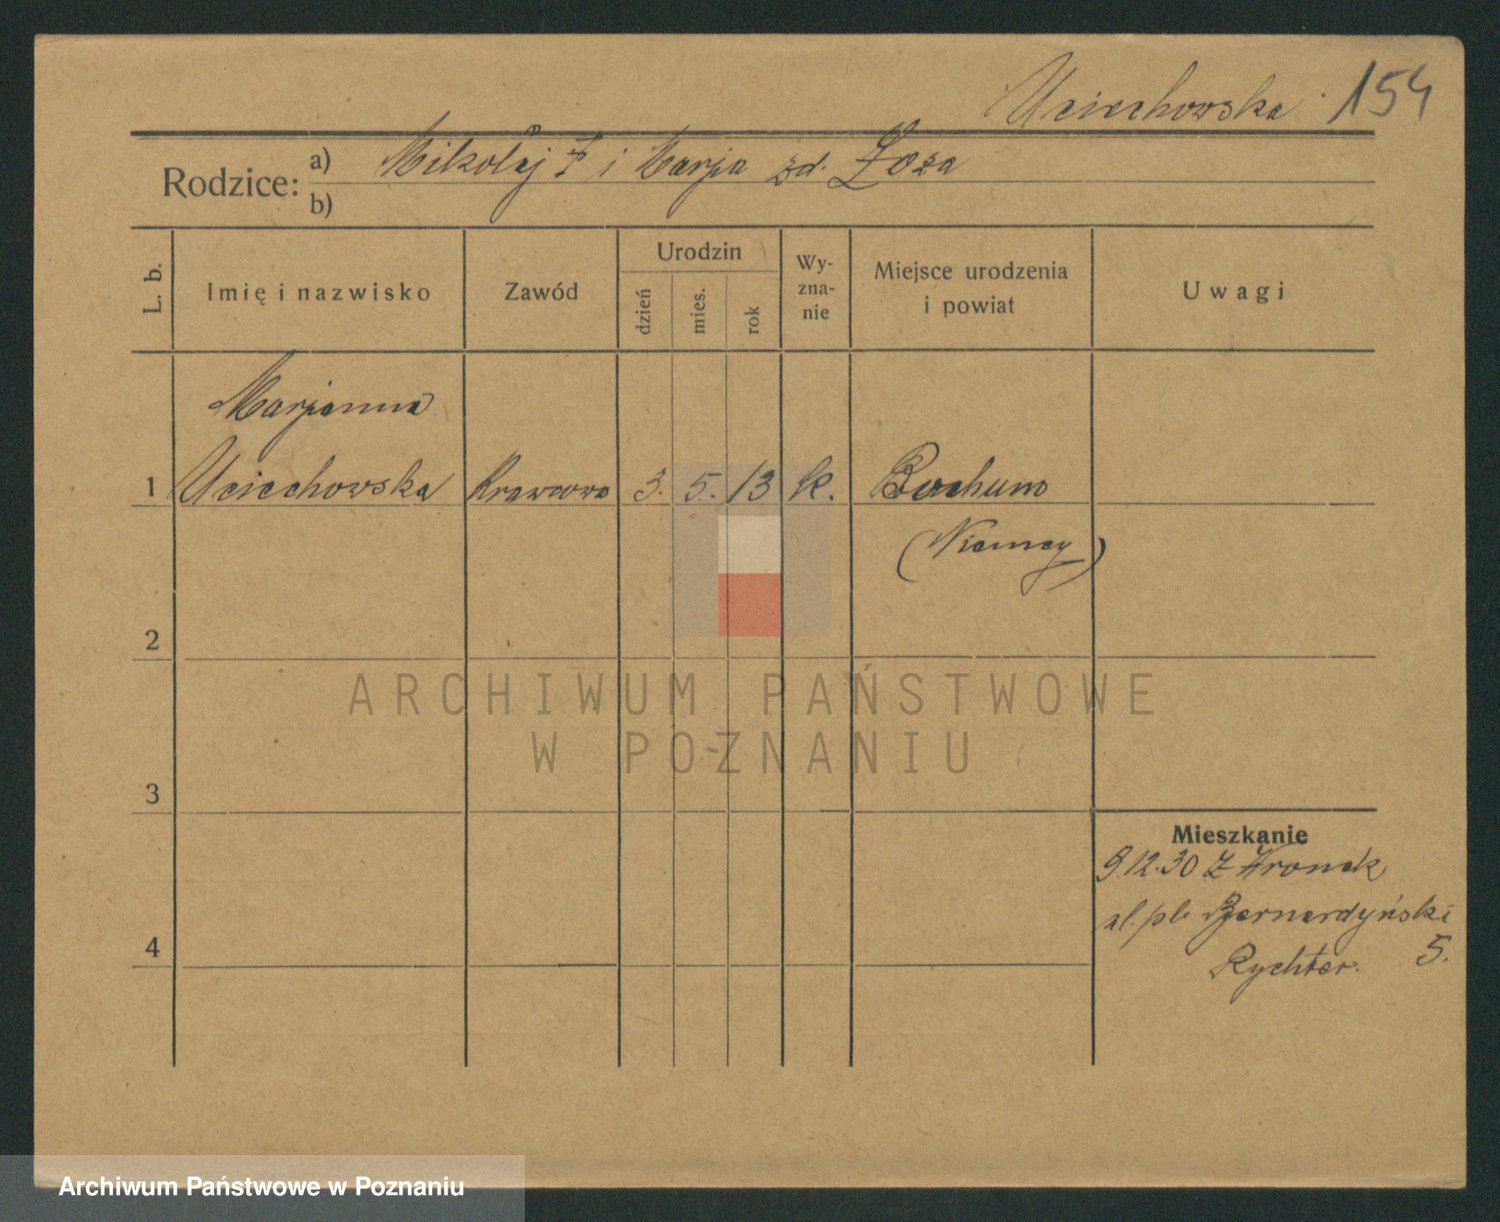 Uciechowska 154
Rodzice: a) Mikołaj † i Marja zd. Łoza
b)
L. b. Imię i nazwisko Zawód Urodzin dzień mies. rok Wy-zna-nie Miejsce urodzenia i powiat Uwagi
Marjanna
1 Uciechowska Krawcowa 3. 5. 13 k. Bochum
(Niemcy)
2
ARCHIWUM PAŃSTWOWE
W POZNANIU
3
Mieszkanie
9.12.30 z Wronek
pl. Bernardyński
4 Rychter. 5.
Archiwum Państwowe w Poznaniu